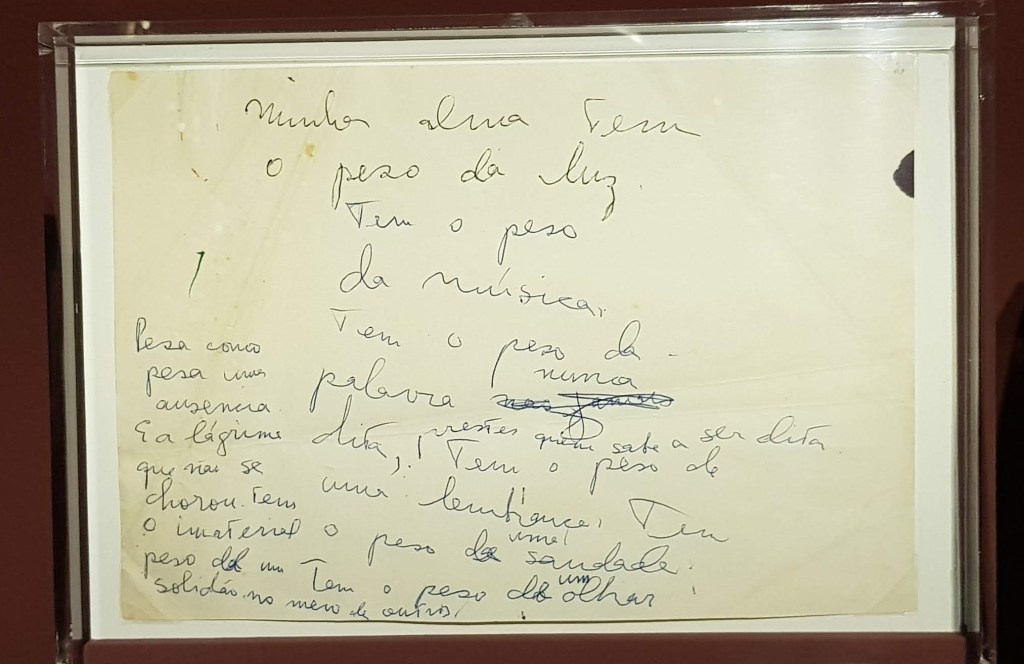 Minha alma tem
o peso da luz.
Tem o peso
da música.
Tem o peso da
palavra nunca
dita, prestes quem sabe a ser dita
Tem o peso de
uma lembrança. Tem
o peso de uma saudade.
Tem o peso de um olhar
Pesa como
pesa uma
ausência.
E a lágrima
que não se
chorou. Tem
o imaterial
peso de um
solidão no meio de outros.